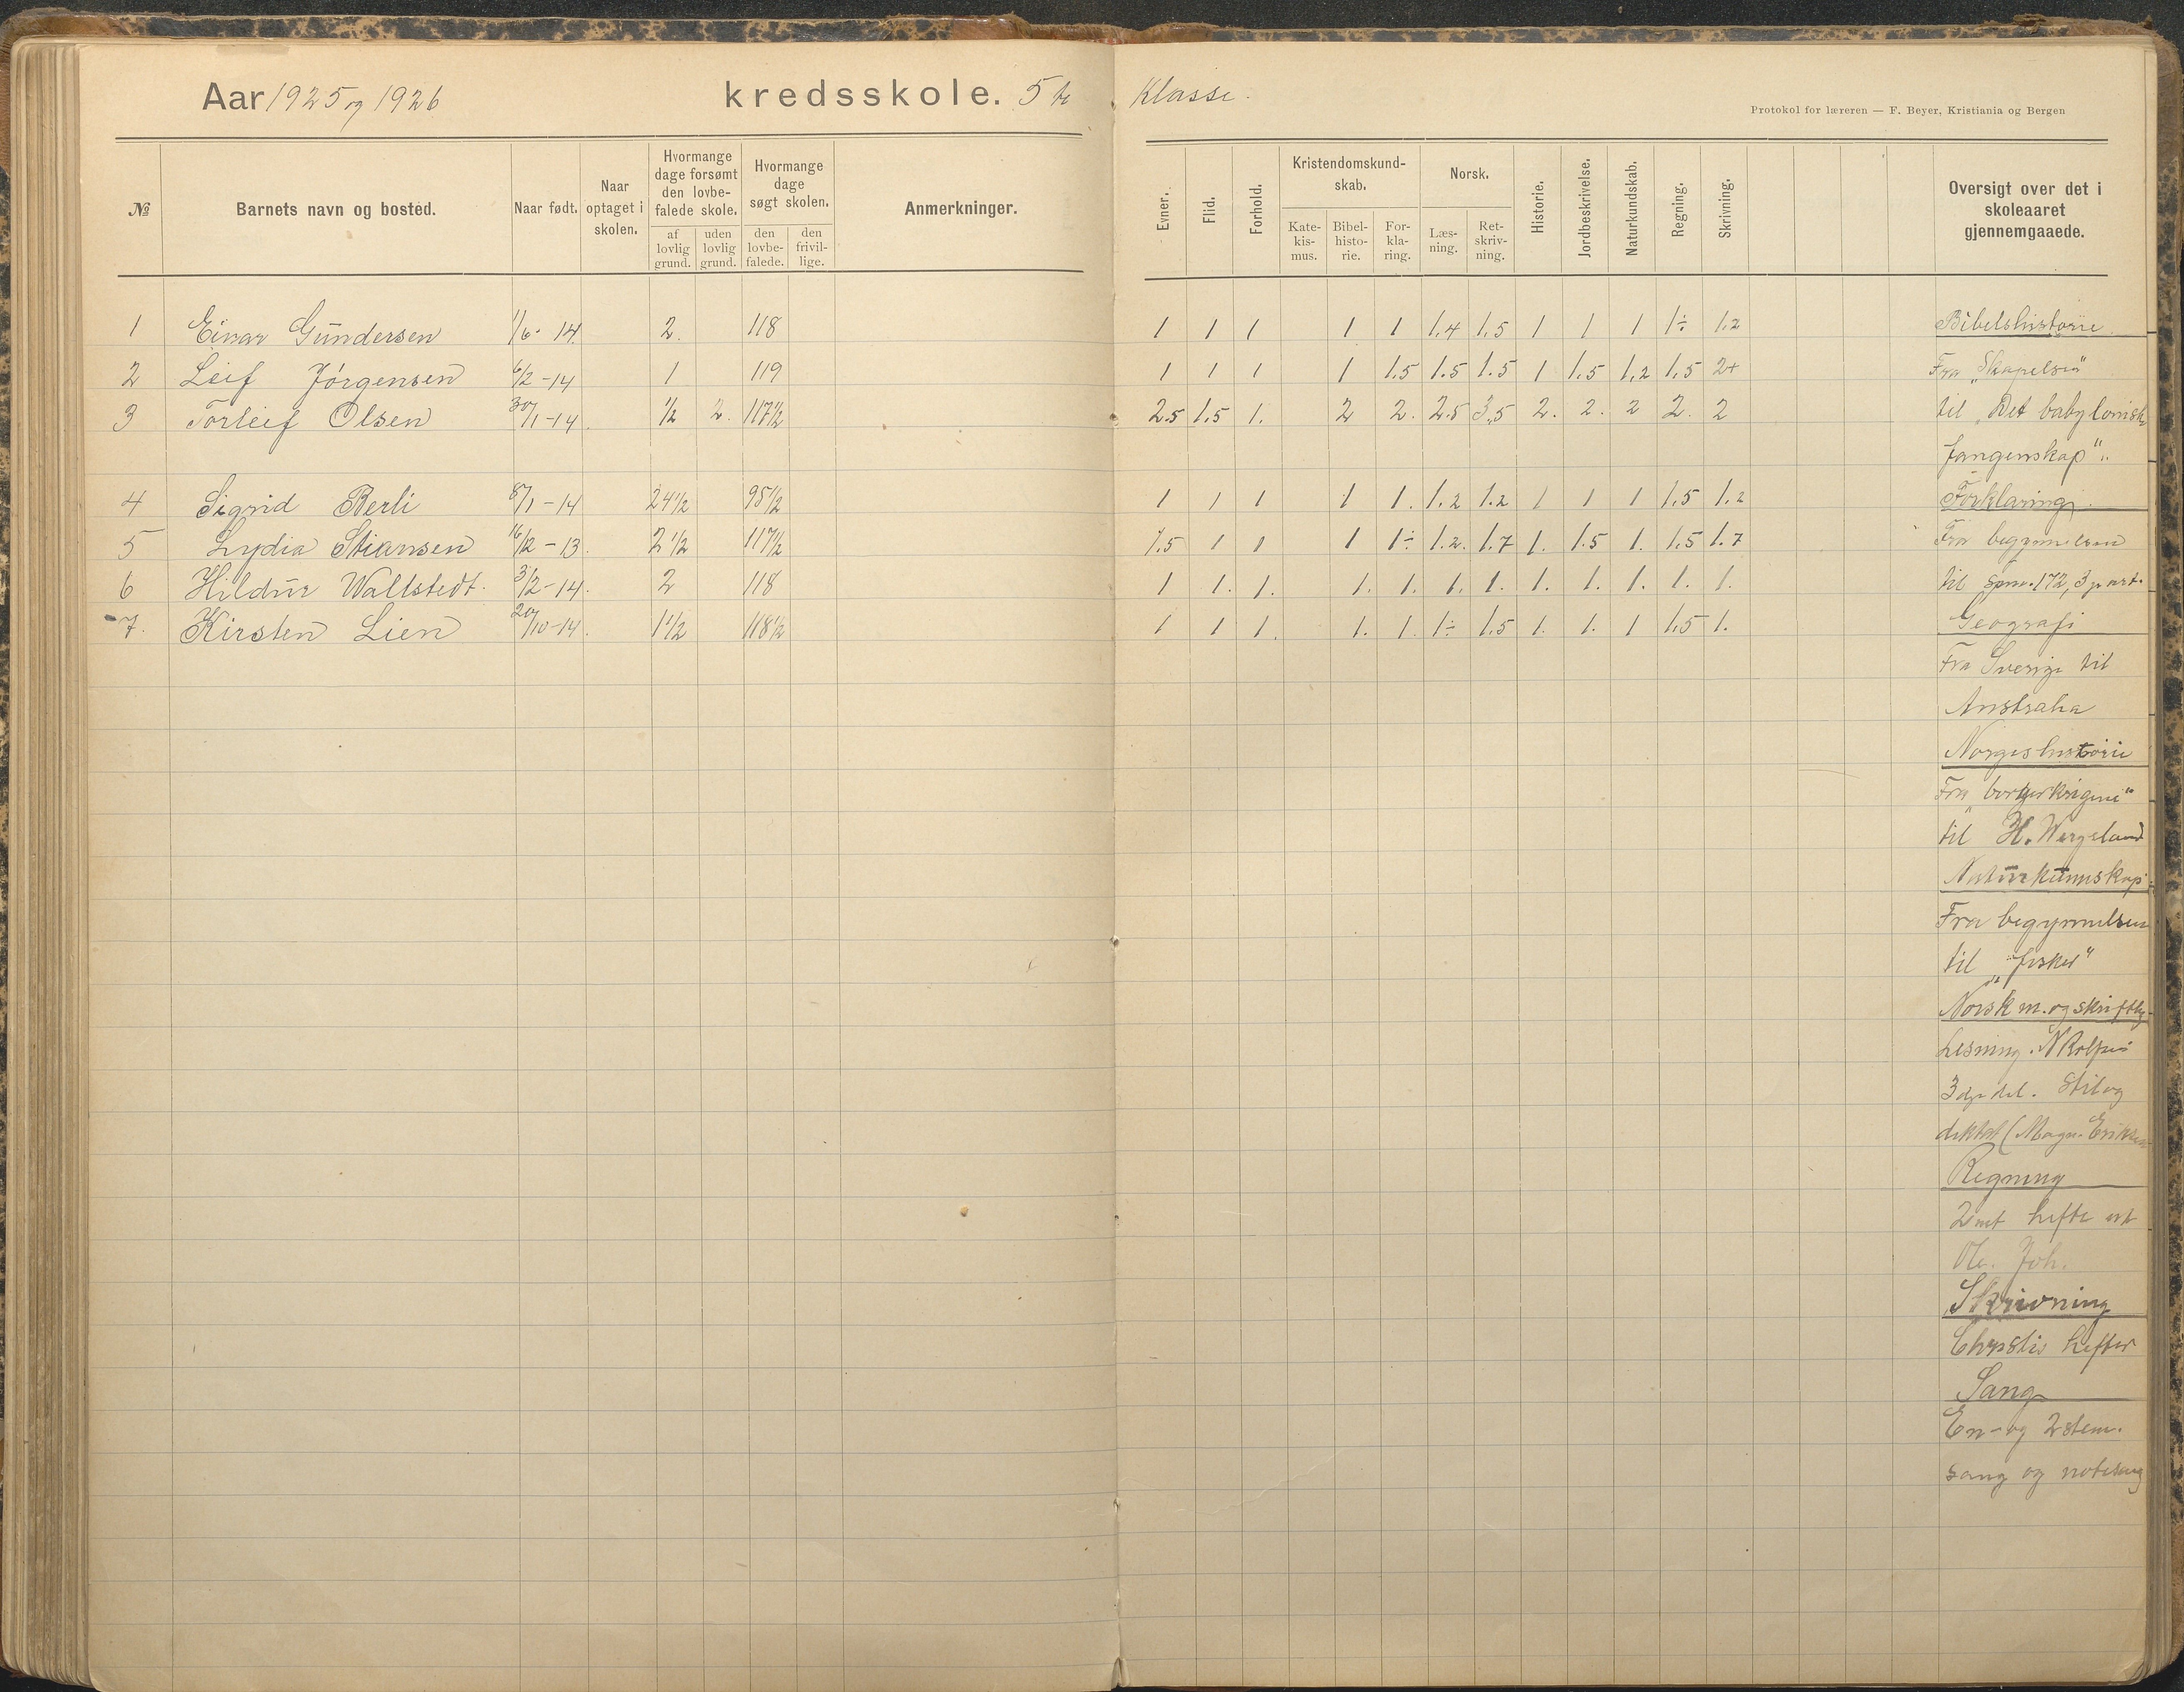 Aar 1925 og 1926 kredsskole. 5te Klasse.
Protokol for læreren — F. Beyer, Kristiania og Bergen
№ Barnets navn og bosted. Naar født. Naar optaget i skolen. Hvormange dage forsømt den lovbefalede skole. af lovlig grund. uden lovlig grund. Hvormange dage søgt skolen. den lovbefalede. den frivillige. Anmerkninger. Evner. Flid. Forhold. Kristendomskundskab. Katekismus. Bibelhistorie. Forklaring. Norsk. Læsning. Retskrivning. Historie. Jordbeskrivelse. Naturkundskab. Regning. Skrivning. Oversigt over det i skoleaaret gjennemgaaede.
1 Einar Gundersen 1/6-14. 2. 118 1 1 1 1 1 1,4 1,5 1 1 1 1÷ 1,2 Bibelshistorie.
2 Leif Jørgensen 6/2-14 1 119 1 1 1 1 1.5 1.5 1.5 1 1.5 1,2 1,5 2+ Fra „Skapelsen"
3 Torleif Olsen 30/1-14. 1/2 2. 117 1/2 2.5 1.5 1. 2 2. 2.5 3,5 2. 2. 2 2. 2 til „Det babylonisk
fangenskap".
4 Sigrid Berli 8/1-14 24 1/2 95 1/2 1 1 1 1 1. 1.2 1.2 1 1 1 1,5 1.2 Forklaring.
5 Lydia Stiansen 16/12-13. 2 1/2 117 1/2 1.5 1 1 1 1÷ 1.2. 1.7 1. 1.5 1. 1.5 1.7 Fra begynnelsen
6 Hildur Wallstedt. 3/2-14. 2 118 1 1. 1. 1. 1. 1. 1. 1. 1. 1. 1. 1. til spm. 172, 3 p art.
7. Kirsten Lien 20/10-14. 1 1/2 118 1/2 1 1 1. 1. 1. 1÷ 1.5 1. 1. 1 1,5 1. Geografi
Fra Sverige til
Australia
Norgeshistorie
Fra „borgerkrigene"
til H. Wergeland
Naturkunnskap.
Fra begynnelsen
til „fisker"
Norsk m. og skriftlig
Lesning. N Rolfsen
3dje del. Stil og
diktat (Magn. Eriksen
Regning
2net hefte av
Ole. Joh.
Skrivning
hefter
Sang
En- og 2stem.
sang og notesang